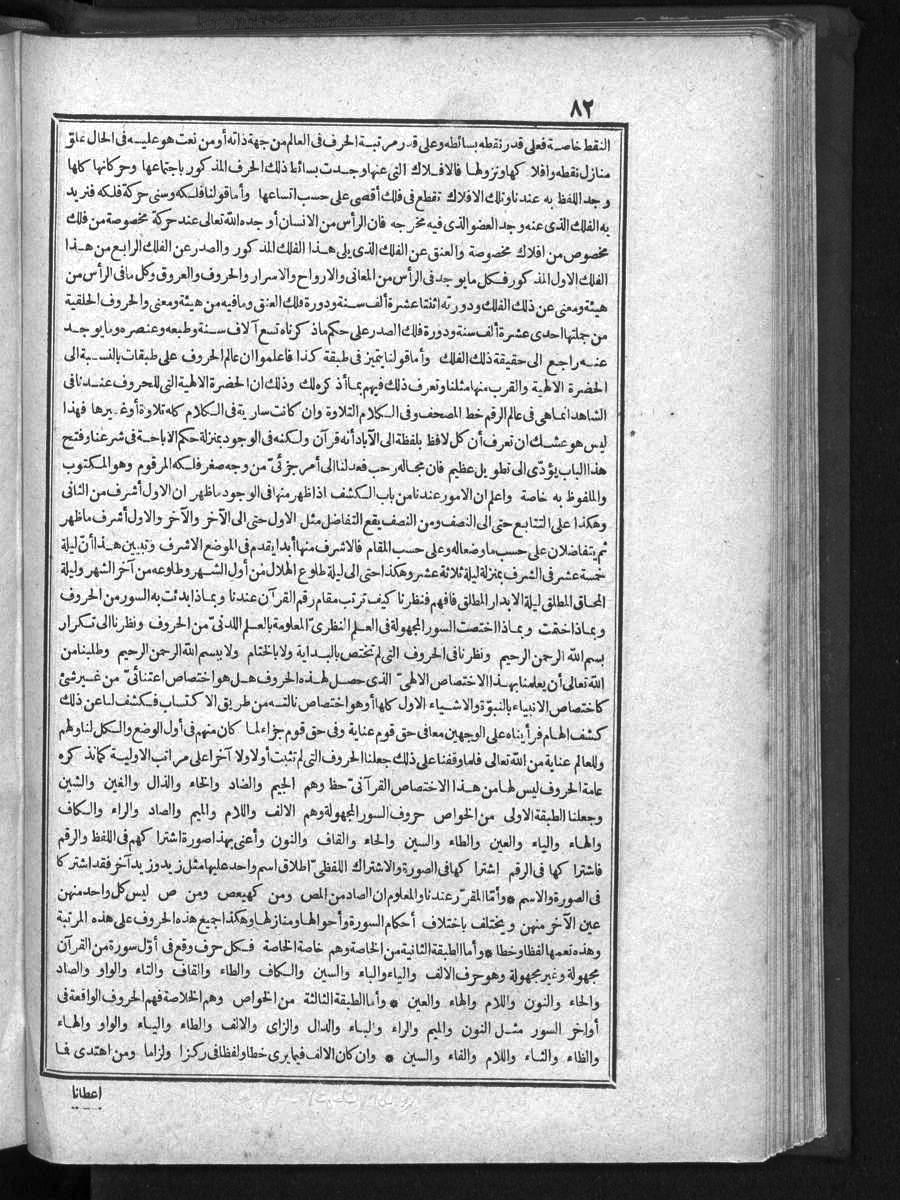 ٨٢
النقط خاصة فعلى قدر نقطه بسائطه وعلى قدر مرتبة الحرف فى العالم من جهة ذاته أو من نعت هو عليه فى الحال علو
منازل نقطه وافلا كها ونزولها فالافلاك التى عنها وجدت بسائط ذلك الحرف المذكور باجتماعها وحركاتها كلها
وجد اللفظ به عندنا وتلك الافلاك تقطع فى فلك أقصى على حسب اتساعها وأما قولنا فلكه وسنى حركة فلكه فنريد
به الفلك الذى عنه وجد العضو الذى فيه مخرجه فان الرأس من الانسان أوجده الله تعالى عند حركة مخصوصة من فلك
مخصوص من افلاك مخصوصة والعنق عن الفلك الذى يلى هذا الفلك المذكور والصدر عن الفلك الرابع من هذا
الفلك الاول المذكور فكل مايوجد فى الرأس من المعانى والارواح والاسرار والحروف والعروق وكل مافى الرأس من
هيئة ومعنى عن ذلك الفلك ودورته اثنتا عشرة ألف سنة ودورة فلك العنق ومافيه من هيئة ومعنى والحروف الحلقية
من جملتها احدى عشرة ألف سنة ودورة فلك الصدر على حكم ماذكرناه تسع آلاف سنة وطبعه وعنصره ومايوجد
عنه راجع الى حقيقة ذلك الفلك وأما قولنا يتميز فى طبقة كذا فاعلموا ان عالم الحروف على طبقات بالنسبة الى
الحضرة الالهية والقرب منها مثلنا وتعرف ذلك فيهم بما أذكره لك وذلك ان الحضرة الالهية التى للحروف عندنا فى
الشاهد انما هى فى عالم الرقم خط المصحف وفى الكلام التلاوة وان كانت سارية فى الكلام كله تلاوة أوغيرها فهذا
ليس هو عشك ان تعرف أن كل لافظ بلفظة الى الآباد أنه قرآن ولكنه فى الوجود بمنزلة حكم الاباحة فى شرعنا وفتح
هذا الباب يؤدّى الى تطويل عظيم فان مجاله رحب فعدلنا الى أمر جزئىّ من وجه صغر فلكه المرقوم وهو المكتوب
والملفوظ به خاصة واعلم ان الامور عندنا من باب الكشف اذا ظهر منها فى الوجود ماظهر ان الاول أشرف من الثانى
وهكذا على التتابع حتى الى النصف ومن النصف يقع التفاضل مثل الاول حتى الى الآخر والآخر والاول أشرف ماظهر
ثم يتفاضلان على حسب ماوضعاله وعلى حسب المقام فالاشرف منها أبدا يقدم فى الموضع الاشرف وتبيين هذا أنّ ليلة
خمسة عشر فى الشرف بمنزلة ليلة ثلاثة عشر وهكذا حتى الى ليلة طلوع الهلال من أول الشهر وطلوعه من آخر الشهر وليلة
المحاق المطلق ليلة الابدار المطلق فافهم فنظرنا كيف ترتب مقام رقم القرآن عندنا وبماذا بدئت به السور من الحروف
وبماذا ختمت وبماذا اختصت السور المجهولة فى العلم النظرىّ المعلومة بالعلم اللدنىّ من الحروف ونظرنا الى تكرار
بسم الله الرحمن الرحيم ونظرنا فى الحروف التى لم تختص بالبداية ولا بالختام ولا ببسم الله الرحمن الرحيم وطلبنا من
الله تعالى أن يعلمنا بهذا الاختصاص الالهىّ الذى حصل لهذه الحروف هل هو اختصاص اعتنائىّ من غير شئ
كاختصاص الانبياء بالنبوّة والاشياء الاول كلها أوهو اختصاص نالته من طريق الاكتساب فكشف لنا عن ذلك
كشف الهام فرأيناه على الوجهين معا فى حق قوم عناية وفى حق قوم جزاء لما كان منهم فى أول الوضع والكل لنا ولهم
وللعالم عناية من الله تعالى فلما وقفنا على ذلك جعلنا الحروف التى لم تثبت أولا ولا آخرا على مراتب الاولية كما نذكره
عامة الحروف ليس لها من هذا الاختصاص القرآنىّ حظ وهم الجيم والضاد والخاء والذال والغين والشين
وجعلنا الطبقة الاولى من الخواص حروف السور المجهولة وهم الالف واللام والميم والصاد والراء والكاف
والهاء والياء والعين والطاء والسين والحاء والقاف والنون وأعنى بهذا صورة اشتراكهم فى اللفظ والرقم
فاشتراكها فى الرقم اشتراكها فى الصورة والاشتراك اللفظىّ اطلاق اسم واحد عليها مثل زيد وزيد آخر فقد اشتركا
فى الصورة والاسم * وأمّا المقرّر عندنا والمعلوم ان الصاد من المص ومن كهيعص ومن ص ليس كل واحد منهن
عين الآخر منهن ويختلف باختلاف أحكام السورة وأحوالها ومنازلها وهكذا جميع هذه الحروف على هذه المرتبة
وهذه تعمها لفظا وخطا * وأما الطبقة الثانية من الخاصة وهم خاصة الخاصة فكل حرف وقع فى أوّل سورة من القرآن
مجهولة وغير مجهولة وهو حرف الالف والياء والباء والسين والكاف والطاء والقاف والتاء والواو والصاد
والحاء والنون واللام والهاء والعين * وأما الطبقة الثالثة من الخواص وهم الخلاصة فهم الحروف الواقعة فى
أواخر السور مثل النون والميم والراء والباء والدال والزاى والالف والطاء والياء والواو والهاء
والظاء والثاء واللام والفاء والسين * وان كان الالف فيما يرى خطا ولفظا فى ركزا ولزاما ومن اهتدى فما
اعطانا